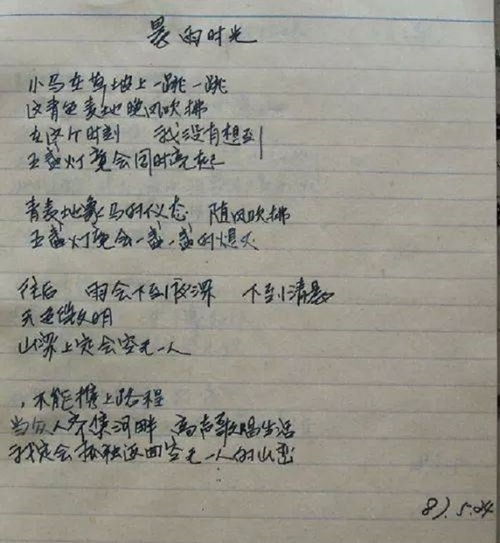 晨雨时光
小马在草坡上一跳一跳
这青色麦地晚风吹拂
在这个时刻 我没有想到
五盏灯竟会同时亮起
青麦地象马的仪态 随风吹拂
五盏灯竟会一盏一盏的熄灭
往后 雨会下到夜深 下到清晨
天色微明
山梁上定会空无一人
不能携上路程
当众人齐集河畔 高声歌唱生活
我定会孤独返回空无一人的山峦